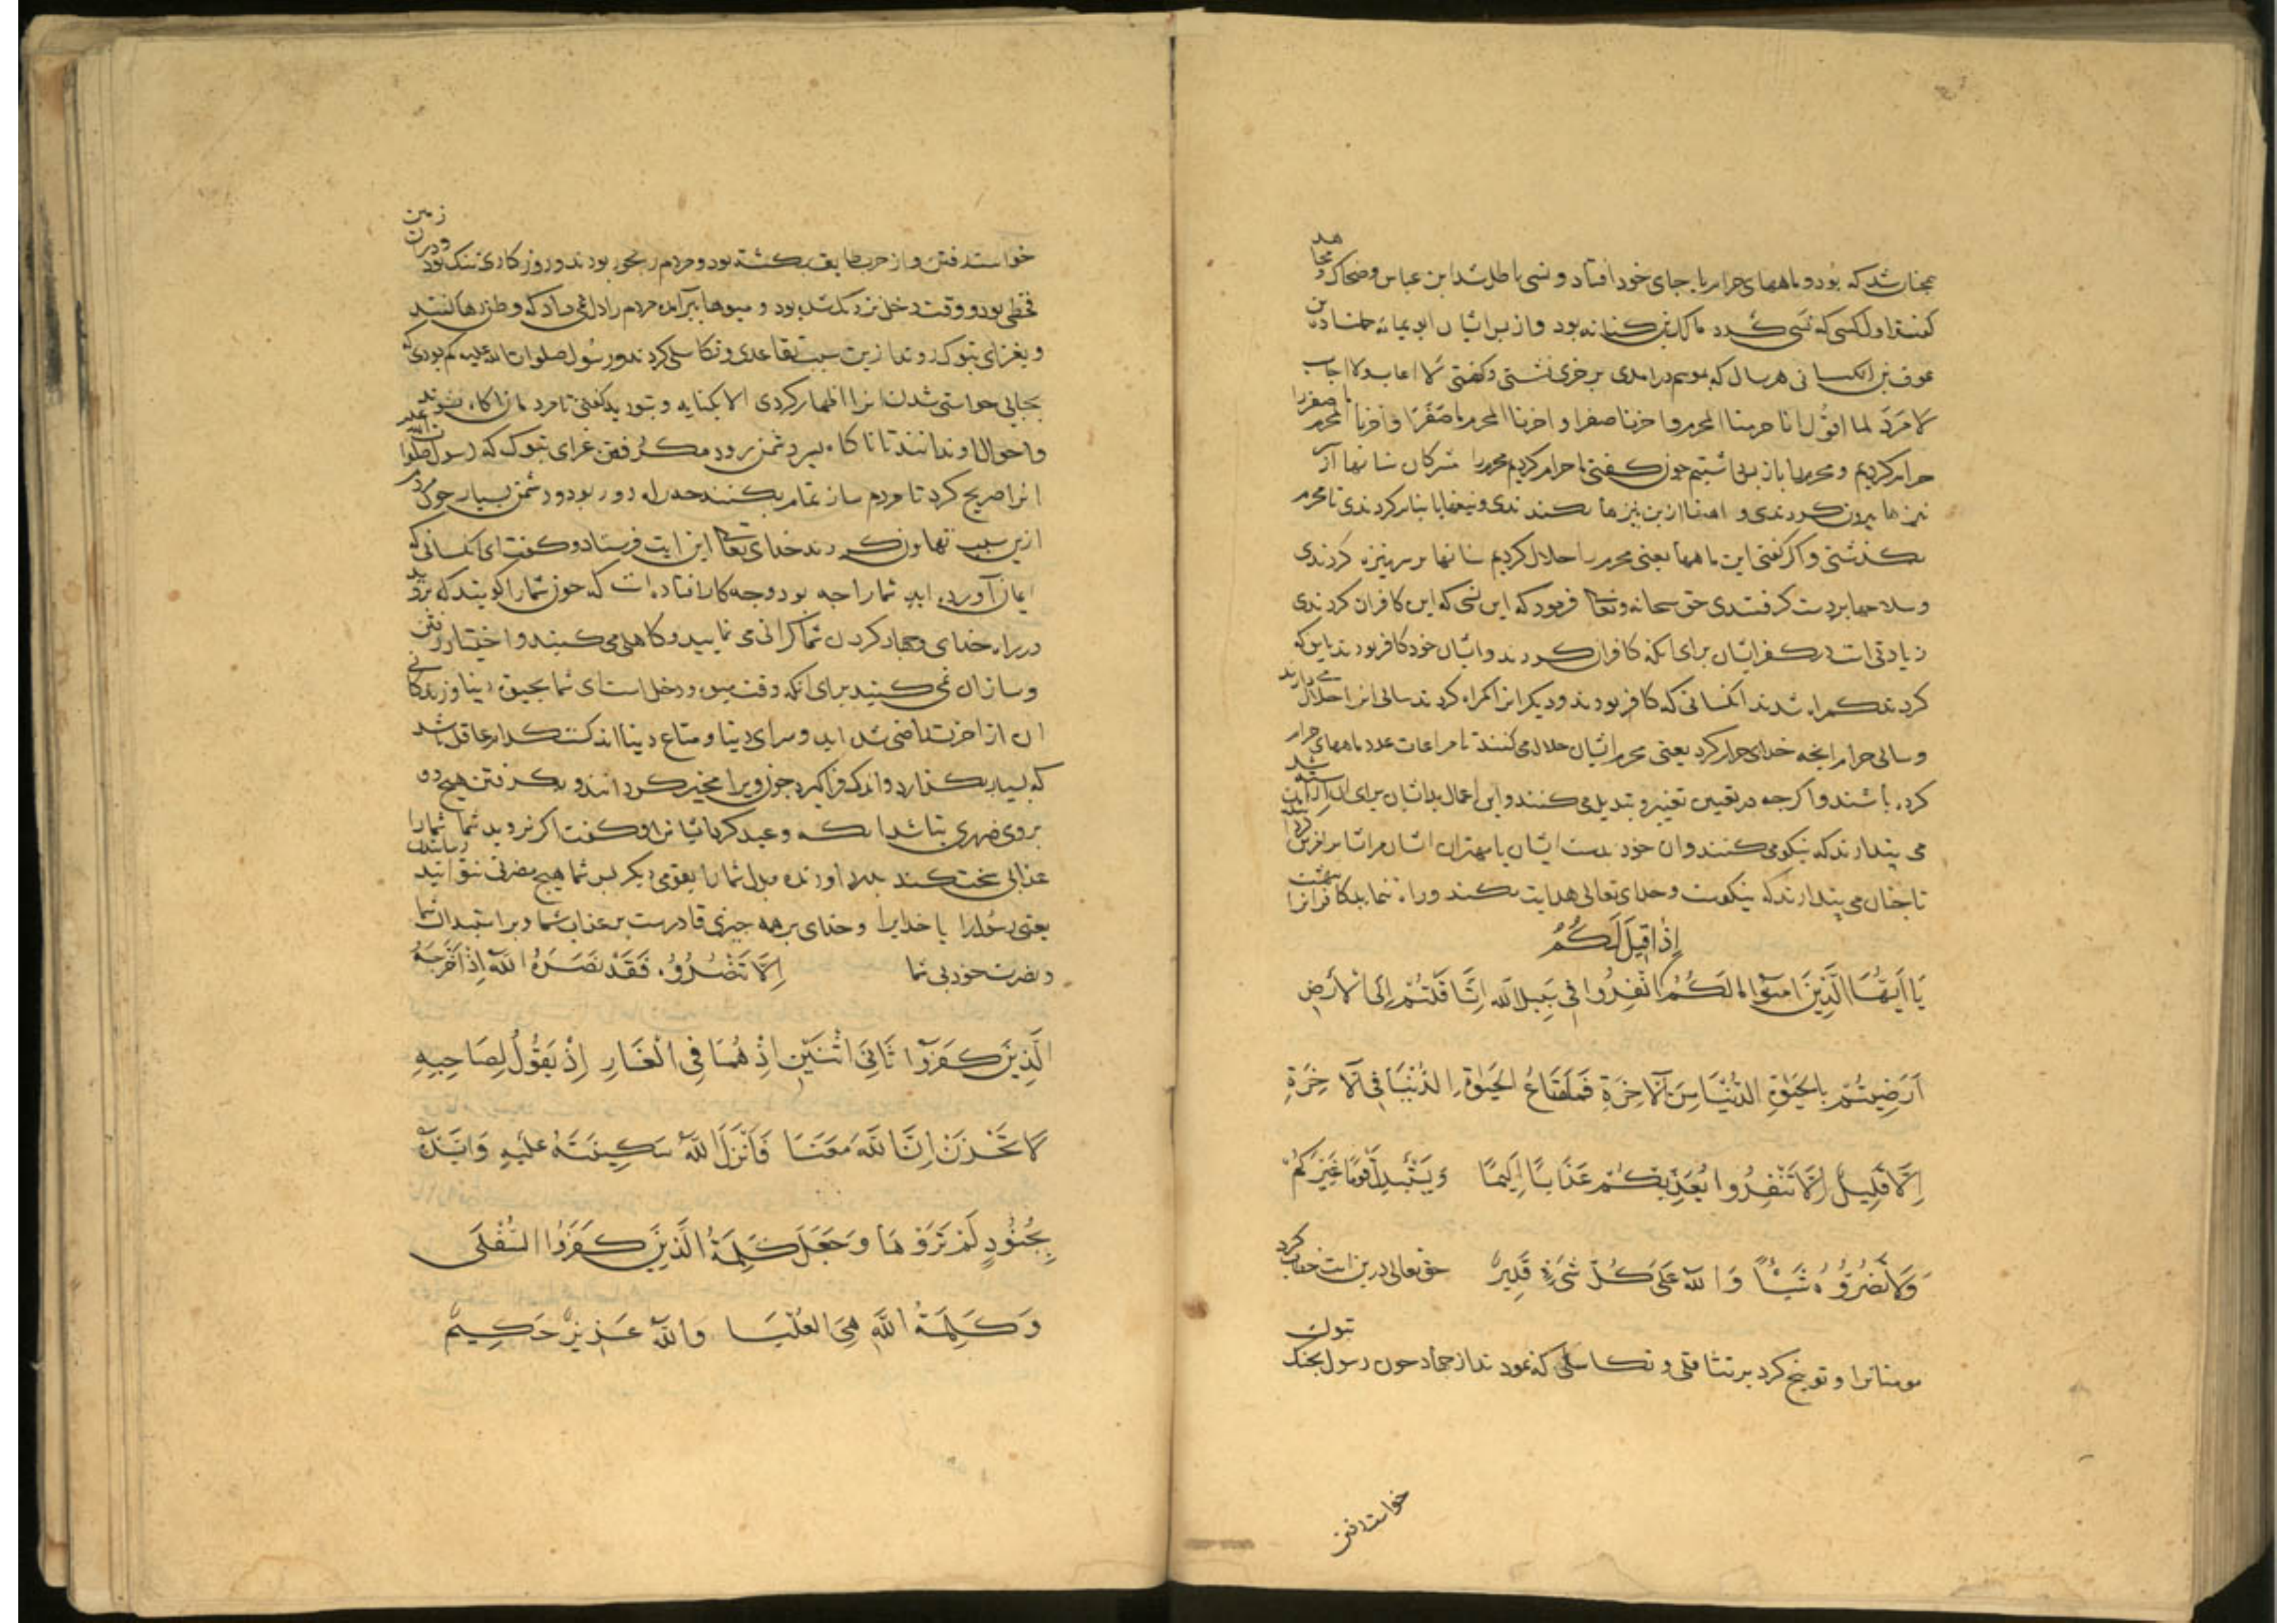 همچنان شد که بود و ماههای حرام با جای خود افتاد و نسی باطل شد ابن عباس و ضحاک و مجاهد
گفتند اول کسی که نسی کرد مالک بن کنانه بود و از پس ایشان ابو ثمامه جناده بن
عوف بن الکسانی هر سال که بموسم در آمدی بر خری نشستی و گفتی لا اعاب ولا اجاب
لا مرد لما اقول انا حرمنا المحرم واخرنا صفرا و اخرنا المحرم ما صفرا
حرام کردیم و محرم را باز پس داشتیم چون گفتی ما حرام کردیم محرم را مشرکان سنانها از
نیزها بیرون کردندی و تا محرم
بگذشتی و اگر گفتی این ماهها یعنی محرم را حلال کردیم سنانها بر سر نیزه کردندی
و سلاحها بر دست گرفتندی حق سبحانه وتعالی فرمود که این نسی که این کافران کردندی
زیادتی است در کفر ایشان برای آنکه کافران کردند و ایشان خود کافر بودند باین که
کردند گمراه شدند آنکسانی که کافر بودند و دیگرانرا گمراه کردند سالی انرا حلال می دارند
و سالی حرام آنچه خدای حرام کرد یعنی محرم ایشان حلال می کنند تا مراعات عدد ماههای حرام
کرده باشند و اگرچه در تعیین تغییر و تبدیل می کنند و این اعمال بد ایشان برای
می پندارند که نیکو می کنند و ان خود
تا چنان می پندارند که نیکوست و خدای تعالی هدایت نکند و راه ننماید کافرانرا
إِذَا قِيلَ لَكُمُ
يَا أَيُّهَا الَّذِينَ آمَنُوا مَا لَكُمُ انْفِرُوا فِي سَبِيلِ اللَّهِ اثَّاقَلْتُمْ إِلَى الْأَرْضِ
أَرَضِيتُمْ بِالْحَيَوةِ الدُّنْيَا مِنَ الْآخِرَةِ فَمَا مَتَاعُ الْحَيَوةِ الدُّنْيَا فِي الْآخِرَةِ
إِلَّا قَلِيلٌ إِلَّا تَنْفِرُوا يُعَذِّبْكُمْ عَذَابًا أَلِيمًا وَيَسْتَبْدِلْ قَوْمًا غَيْرَكُمْ
وَلَا تَضُرُّوهُ شَيْئًا وَاللَّهُ عَلَى كُلِّ شَيْءٍ قَدِيرٌ حق تعالی درین آیت خطاب کرد
مومنانرا و توبیخ کرد بر تثاقلی و تکاسلی که نمودند از جهاد چون رسول بجنگ تبوک
خواست رفتن
خواست رفتن و از حرب طایف بگشته بود و مردم رنجور بودند و روزگاری تنگ بود و دران زمین
قحطی بود و وقت دخل نزدیک شده بود و میوها برآمده مردم را دل نمی داد که وطن رها کنند
و بغزای تبوک روند ازین سبب تقاعدی و تکاسلی کردند و رسول صلوات الله علیه کم بودی که
بجایی خواستی شدن انرا اظهار کردی الا بکنایه و بتوریه گفتی تا مردمان آگاه نشوند
و احوال او ندانند تا ناگاه بسر دشمن رود مگر رفتن غزای تبوک که رسول صلوات الله علیه
انرا صریح کرد تا مردم ساز تمام بکنند چه راه دور بود و دشمن بسیار چون مردم
ازین سبب تهاون کردند خدای تعالی این ایت فرستاد و گفت ای انکسانی که
ایمان آورده اید شما را چه بود و چه کار افتاده است که چون شما را گویند که بروید
در راه خدای و جهاد کردن شما گرانی می نمایید و کاهلی می کنید و اختیار رفتن
و ساز ان نمی کنید برای انکه وقت میوه و دخل است ای شما بحیوة دنیا و زندگانی
ان از اخرت راضی شده اید و سرای دنیا و متاع دنیا اندکست کدام عاقل باشد
که بسیار بگذارد و اندک فرا گیرد چون ویرا مخیر گردانند و بگرفتن هیچ دو
بروی ضرری نباشد انگه وعید کرد ایشانرا و گفت اگر نروید شما شما را
عذابی سخت کند و بدل شما را بقومی دیگر پس شما هیچ مضرتی نتوانید رسانیدن
یعنی رسول را یا خدایرا و خدای بر همه چیزی قادرست بر عذاب شما و بر استبدال شما
و نصرت خود بی شما إِلَّا تَنْصُرُوهُ فَقَدْ نَصَرَهُ اللَّهُ إِذْ أَخْرَجَهُ
الَّذِينَ كَفَرُوا ثَانِيَ اثْنَيْنِ إِذْ هُمَا فِي الْغَارِ إِذْ يَقُولُ لِصَاحِبِهِ
لَا تَحْزَنْ إِنَّ اللَّهَ مَعَنَا فَأَنْزَلَ اللَّهُ سَكِينَتَهُ عَلَيْهِ وَأَيَّدَهُ
بِجُنُودٍ لَمْ تَرَوْهَا وَجَعَلَ كَلِمَةَ الَّذِينَ كَفَرُوا السُّفْلَى
وَكَلِمَةُ اللَّهِ هِيَ الْعُلْيَا وَاللَّهُ عَزِيزٌ حَكِيمٌ